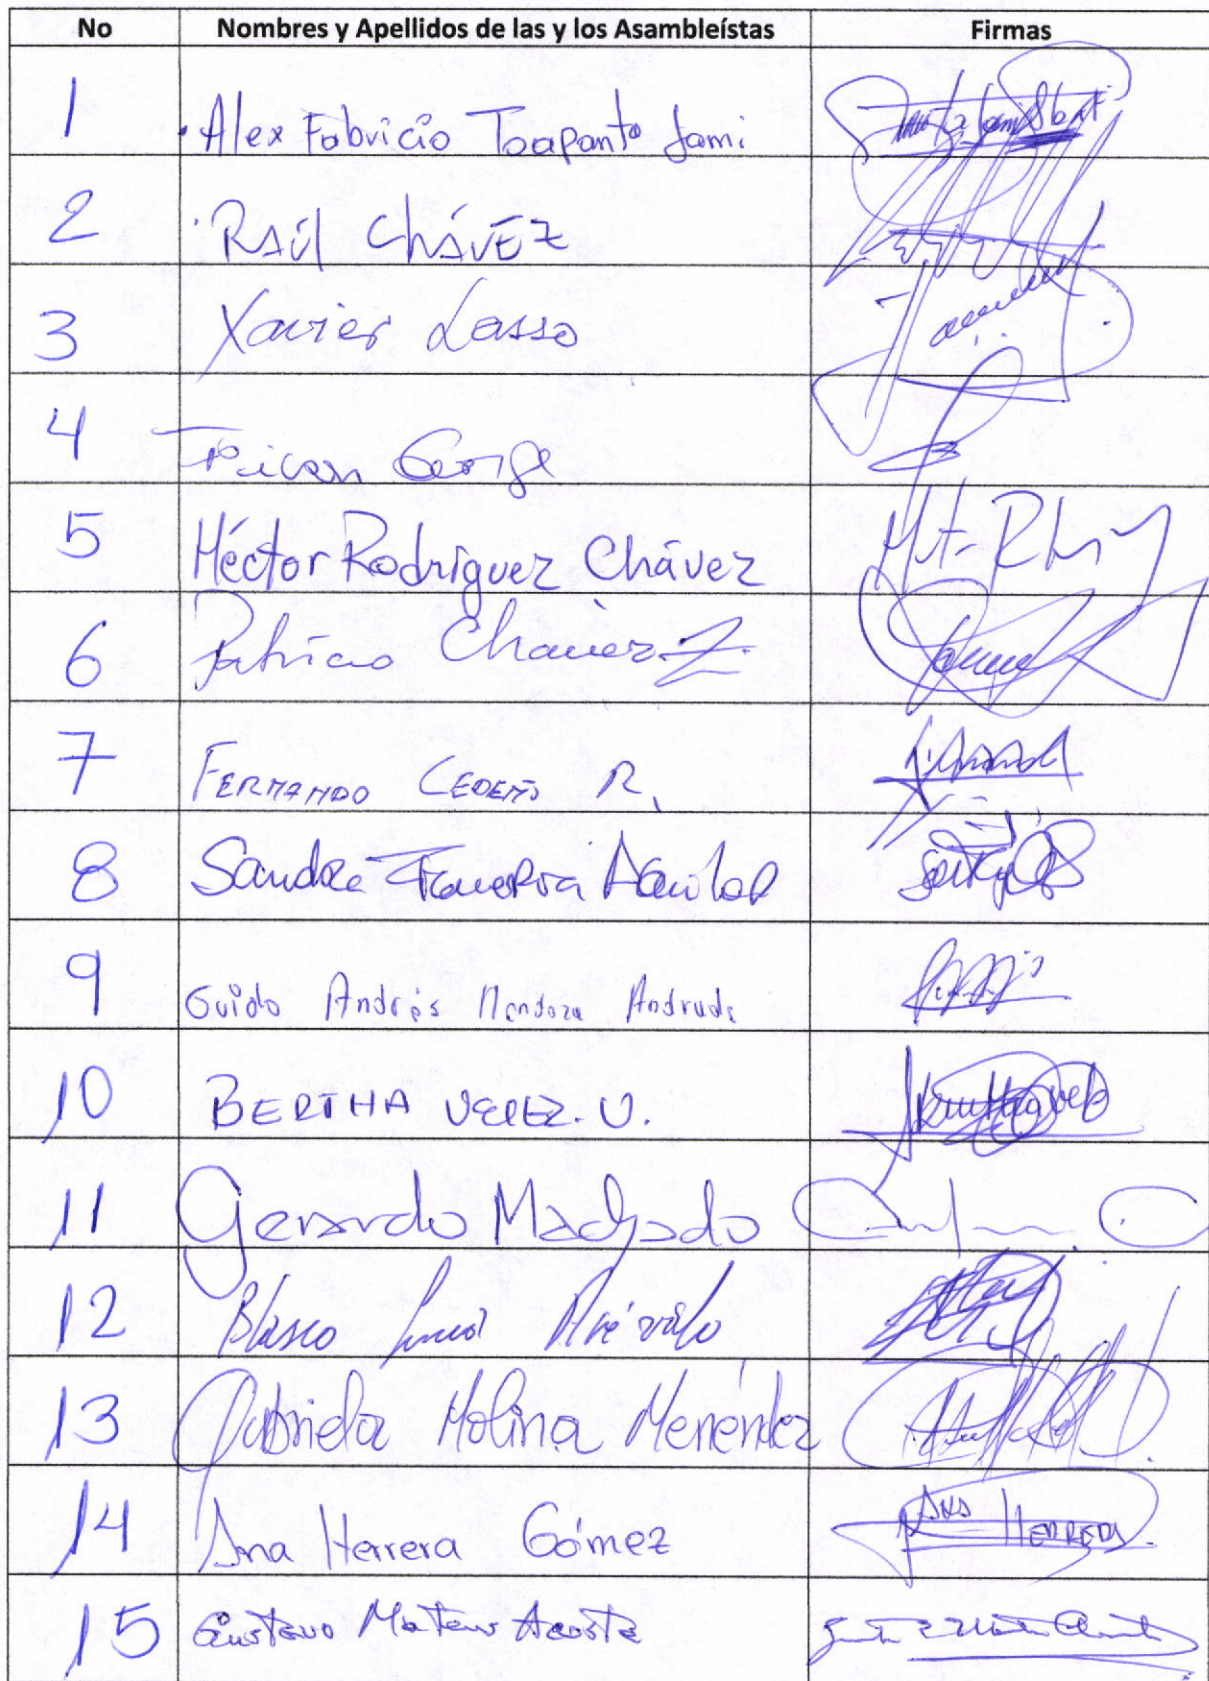 No Nombres y Apellidos de las y los Asambleístas Firmas
1 Alex Fabricio Toapanta Jami
2 Raúl Chávez
3 Xavier Lasso
4
5 Héctor Rodríguez Chávez
6 Patricio Chávez Z.
7 Fernando Cedeño R.
8 Sandra Aguilar
9 Guido Andrés Mendoza Andrade
10 BERTHA VELEZ. V.
11 Gerardo Machado
12 Blasco Luna Arévalo
13 Gabriela Molina Menéndez
14 Ana Herrera Gómez Ana HERRERA.
15 Gustavo Mateus Acosta